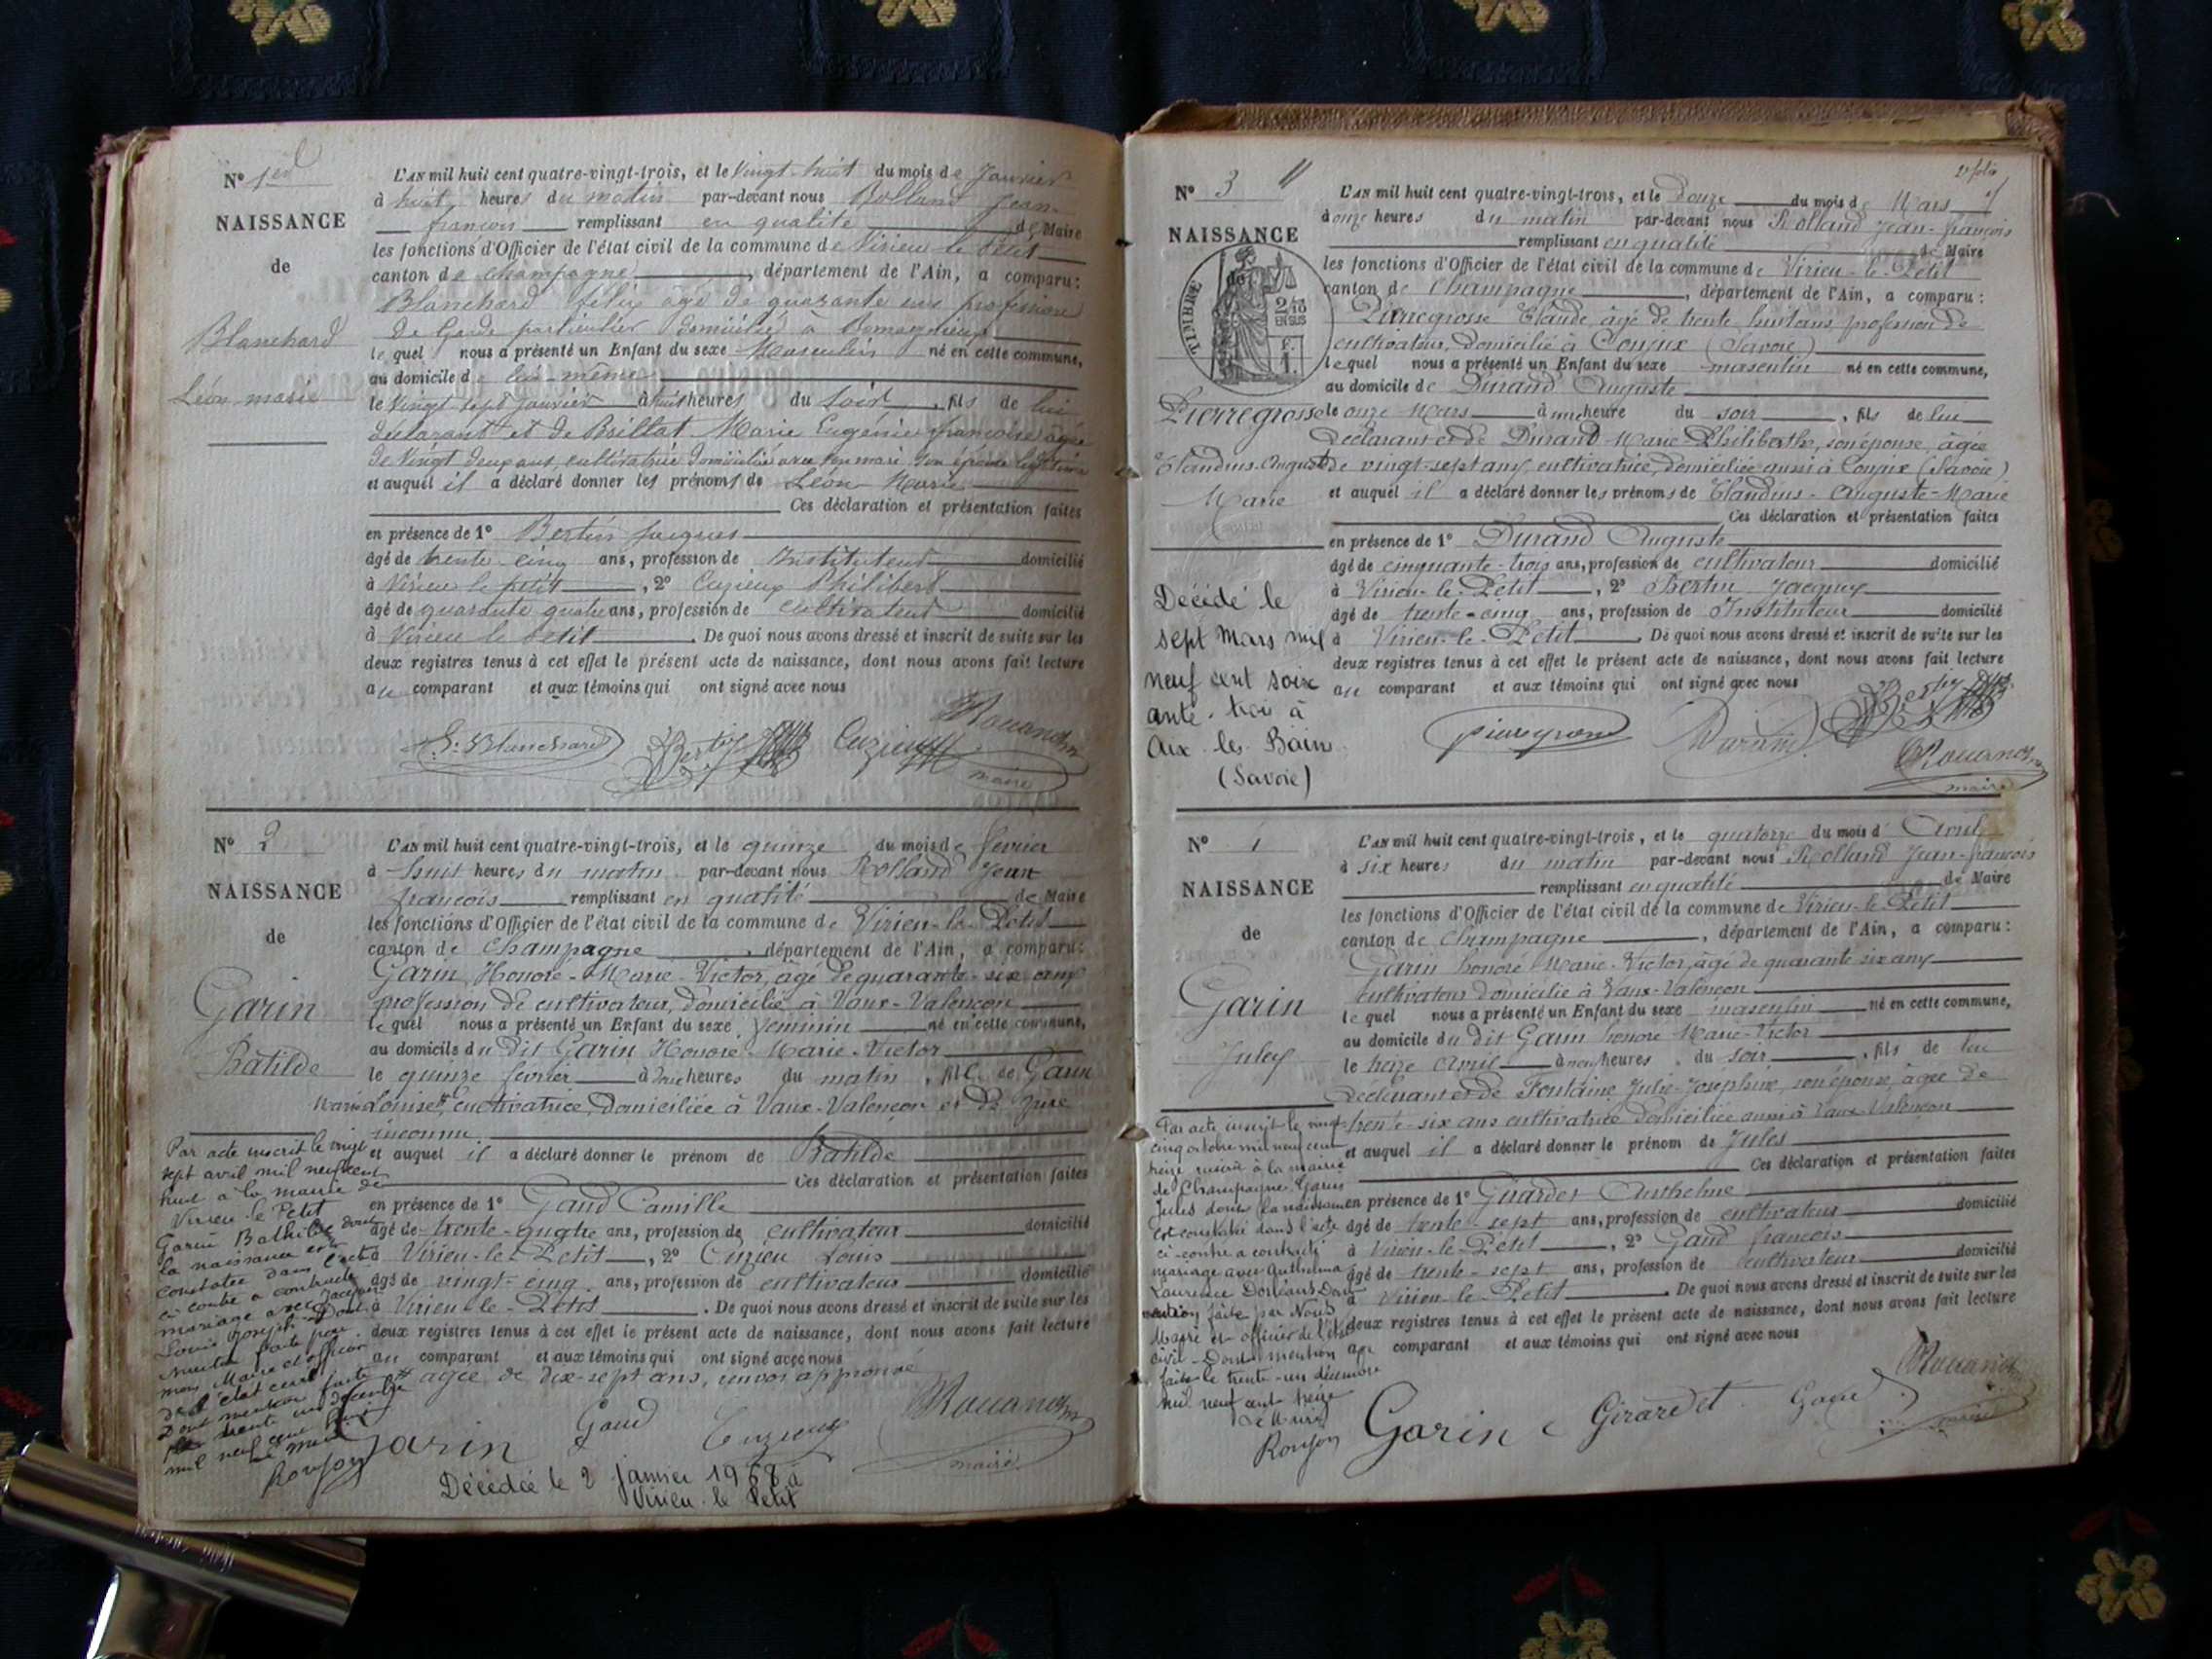 N° 1er
NAISSANCE
de
Blanchard
Léon marie
L'AN mil huit cent quatre-vingt-trois, et le vingt-huit du mois de Janvier
à huit heures du matin par-devant nous Rolland Jean-
françois remplissant en qualité de Maire
les fonctions d'Officier de l'état civil de la commune de Virieu-le-Petit
canton de Champagne, département de l'Ain, a comparu:
Blanchard félix âgé de quarante ans profession
de Garde particulier domicilié à
le quel nous a présenté un Enfant du sexe Masculin né en cette commune,
au domicile de lui-même
le vingt sept janvier à huit heures du soir, fils de lui
déclarant et de Brillat Marie Eugénie françoise âgée
de vingt deux ans, cultivatrice domiciliée avec son mari, son épouse légitime
et auquel il a déclaré donner les prénoms de Léon Marie
Ces déclaration et présentation faites
en présence de 1° Bertin Jacques
âgé de trente-cinq ans, profession de Instituteur domicilié
à Virieu le petit, 2° Cuzieux Philibert
âgé de quarante quatre ans, profession de cultivateur domicilié
à Virieu le Petit. De quoi nous avons dressé et inscrit de suite sur les
deux registres tenus à cet effet le présent acte de naissance, dont nous avons fait lecture
au comparant et aux témoins qui ont signé avec nous
Blanchard Bertin Cuzieux
maire
N° 2
NAISSANCE
de
Garin
Batilde
L'AN mil huit cent quatre-vingt-trois, et le quinze du mois de février
à huit heures du matin par-devant nous Rolland Jean
françois remplissant en qualité de Maire
les fonctions d'Officier de l'état civil de la commune de Virieu-le-Petit
canton de Champagne, département de l'Ain, a comparu:
Garin Honoré-Marie-Victor, âgé de quarante-six ans
profession de cultivateur, domicilié à Vaux-Valencon
le quel nous a présenté un Enfant du sexe féminin né en cette commune,
au domicile du dit Garin Honoré-Marie-Victor
le quinze février à heures du matin, fille de Garin
Marie Louise #, cultivatrice, domiciliée à Vaux-Valencon et de père
inconnu
et auquel il a déclaré donner le prénom de Batilde
Ces déclaration et présentation faites
en présence de 1° Gaud Camille
âgé de trente-quatre ans, profession de cultivateur domicilié
à Virieu-le-Petit, 2° Cuzieu Louis
âgé de vingt-cinq ans, profession de cultivateur domicilié
à Virieu-le-Petit. De quoi nous avons dressé et inscrit de suite sur les
deux registres tenus à cet effet le présent acte de naissance, dont nous avons fait lecture
au comparant et aux témoins qui ont signé avec nous
# agée de dix-sept ans, renvoi approuvé
Par acte inscrit le vingt
sept avril mil neuf cent
huit à la mairie de
Virieu-le Petit
Garin Bathilde dont
la naissance est
constatée dans l'acte
ci-contre a contracté
mariage avec Jacquin
Louis Joseph. Dont
mention faite par
nous Maire et officier
de l'état civil
Dont mention faite
le trente un décembre
mil neuf cent huit
Le Maire
Garin Gaud Cuzieux
maire
Décédée le 2 janvier 1968 à
Virieu-le Petit
2e folio
N° 3
NAISSANCE
de
TIMBRE
2/10
EN SUS
F.
1.
Pierregrosse
Claudius-Auguste
Marie
L'AN mil huit cent quatre-vingt-trois, et le douze du mois de Mars
à onze heures du matin par-devant nous Rolland Jean-françois
remplissant en qualité de Maire
les fonctions d'Officier de l'état civil de la commune de Virieu-le-Petit
canton de Champagne, département de l'Ain, a comparu:
Pierregrosse Claude, âgé de trente huit ans, profession de
cultivateur, domicilié à Conjux (Savoie)
le quel nous a présenté un Enfant du sexe masculin né en cette commune,
au domicile de Durand Auguste
le onze Mars à une heure du soir, fils de lui
déclarant et de Durand Marie-Philiberthe, son épouse, âgée
de vingt-sept ans, cultivatrice, domiciliée aussi à Conjux (Savoie)
et auquel il a déclaré donner les prénoms de Claudius-Auguste-Marie
Ces déclaration et présentation faites
en présence de 1° Durand Auguste
âgé de cinquante-trois ans, profession de cultivateur domicilié
à Virieu-le-Petit, 2° Bertin Jacques
âgé de trente-cinq ans, profession de Instituteur domicilié
à Virieu-le-Petit. De quoi nous avons dressé et inscrit de suite sur les
deux registres tenus à cet effet le présent acte de naissance, dont nous avons fait lecture
au comparant et aux témoins qui ont signé avec nous
Décédé le
sept mars mil
neuf cent soix
ante-trois à
Aix-les-Bains
(Savoie)
Durand
maire
N°
NAISSANCE
de
Garin
Jules
L'AN mil huit cent quatre-vingt-trois, et le quatorze du mois d'Avril
à six heures du matin par-devant nous Rolland Jean-françois
remplissant en qualité de Maire
les fonctions d'Officier de l'état civil de la commune de Virieu-le-Petit
canton de Champagne, département de l'Ain, a comparu:
Garin honoré Marie-Victor, âgé de quarante six ans
cultivateur domicilié à Vaux-Valencon
le quel nous a présenté un Enfant du sexe masculin né en cette commune,
au domicile du dit Garin honoré Marie-Victor
le treize Avril à neuf heures du soir, fils de lui
déclarant et de Fontaine Julie-Joséphine, son épouse, âgée de
trente-six ans cultivatrice domiciliée aussi à Vaux-Valencon
et auquel il a déclaré donner le prénom de Jules
Ces déclaration et présentation faites
en présence de 1° Girardet Anthelme
âgé de trente-sept ans, profession de cultivateur domicilié
à Virieu-le-Petit, 2° Gaud françois
âgé de trente-sept ans, profession de cultivateur domicilié
à Virieu-le-Petit. De quoi nous avons dressé et inscrit de suite sur les
deux registres tenus à cet effet le présent acte de naissance, dont nous avons fait lecture
au comparant et aux témoins qui ont signé avec nous
Par acte inscrit le vingt
cinq octobre mil neuf cent
treize à la mairie
de Champagne, Garin
Jules dont la naissance
est constatée dans l'acte
ci-contre a contracté
mariage avec Anthelma
Laurence Dont
mention faite par Nous
Maire et officier de l'état
civil - Dont mention
faite le trente-un décembre
mil neuf cent treize
Le Maire
Garin Girardet Gaud
maire